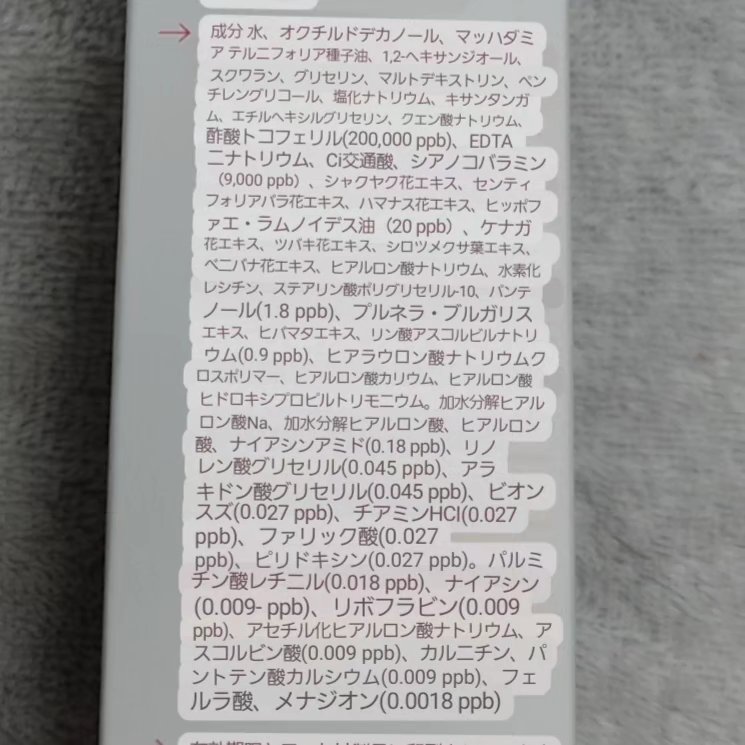 成分 水、オクチルドデカノール、マッハダミ
ア テルニフォリア種子油、1,2-ヘキサンジオール、
スクワラン、グリセリン、マルトデキストリン、ペン
チレングリコール、塩化ナトリウム、キサンタンガ
ム、エチルヘキシルグリセリン、クエン酸ナトリウム、
酢酸トコフェリル(200,000 ppb)、EDTA
二ナトリウム、Ci交通酸、シアノコバラミン
（9,000 ppb）、シャクヤク花エキス、センティ
フォリアバラ花エキス、ハマナス花エキス、ヒッポフ
ァエ・ラムノイデス油（20 ppb）、ケナガ
花エキス、ツバキ花エキス、シロツメクサ葉エキス、
ベニバナ花エキス、ヒアルロン酸ナトリウム、水素化
レシチン、ステアリン酸ポリグリセリル-10、パンテ
ノール(1.8 ppb)、プルネラ・ブルガリス
エキス、ヒバマタエキス、リン酸アスコルビルナトリ
ウム(0.9 ppb)、ヒアラウロン酸ナトリウムク
ロスポリマー、ヒアルロン酸カリウム、ヒアルロン酸
ヒドロキシプロピルトリモニウム。加水分解ヒアル
ロン酸Na、加水分解ヒアルロン酸、ヒアルロン
酸、ナイアシンアミド(0.18 ppb)、リノ
レン酸グリセリル(0.045 ppb)、アラ
キドン酸グリセリル(0.045 ppb)、ビオン
スズ(0.027 ppb)、チアミンHCl(0.027
ppb)、ファリック酸(0.027
ppb)、ピリドキシン(0.027 ppb)。パルミ
チン酸レチニル(0.018 ppb)、ナイアシン
(0.009- ppb)、リボフラビン(0.009
ppb)、アセチル化ヒアルロン酸ナトリウム、ア
スコルビン酸(0.009 ppb)、カルニチン、パ
ントテン酸カルシウム(0.009 ppb)、フェ
ルラ酸、メナジオン(0.0018 ppb)